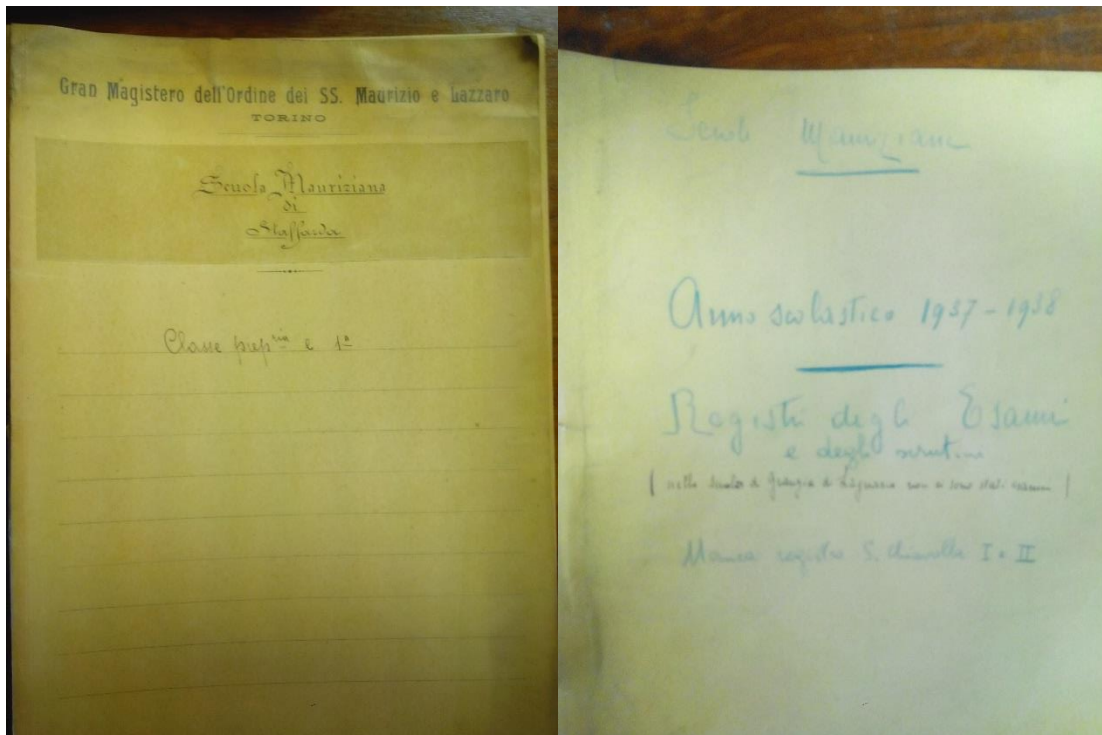 Gran Magistero dell'Ordine dei SS. Maurizio e Lazzaro
TORINO
Scuola Mauriziana
di
Staffarda
Classe prep.ria e 1a
Scuole Mauriziane
Anno scolastico 1937-1938
Registri degli Esami
e degli scrutini
(nella scuola di Grangia di non ci sono stati esami)
Manca registro S. I e II